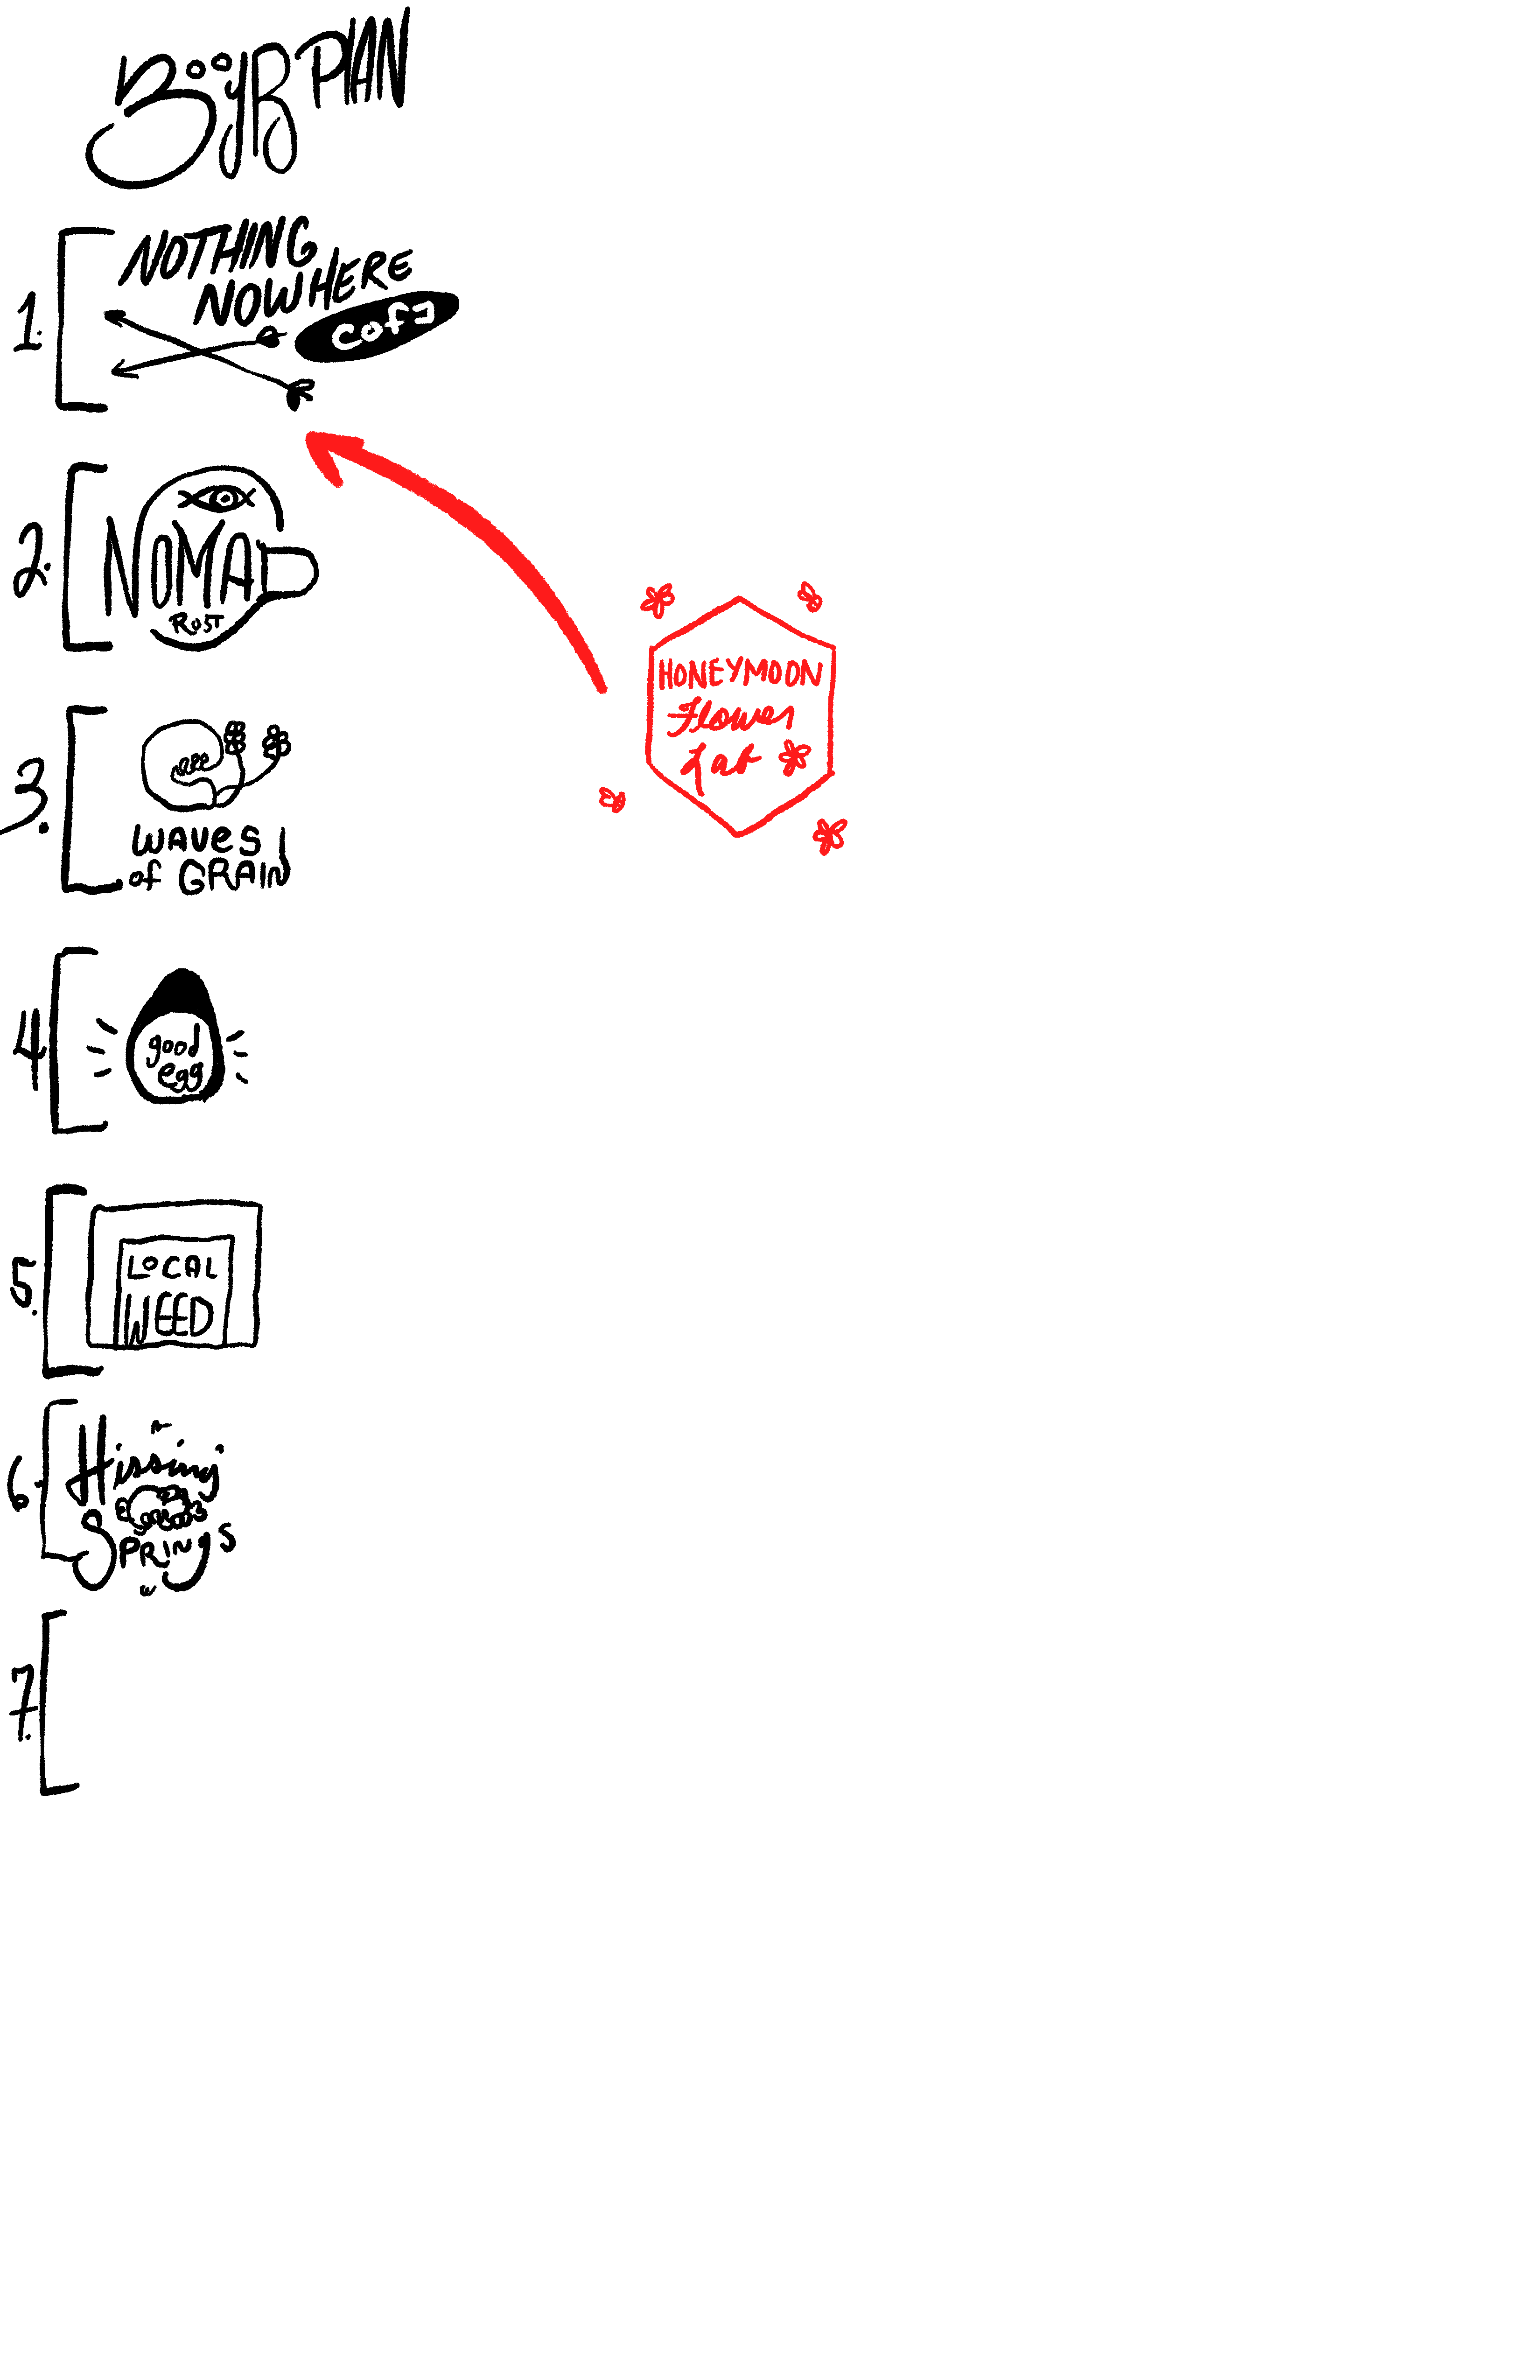 PLAN
1.
NOTHING
NOWHERE
2.
NOMA
ROST
3.
WAVES
of GRAIN
4
good
egg
5.
LOCAL
WEED
6.
Hissing
SPRINGS
7.
HONEYMOON
Flower